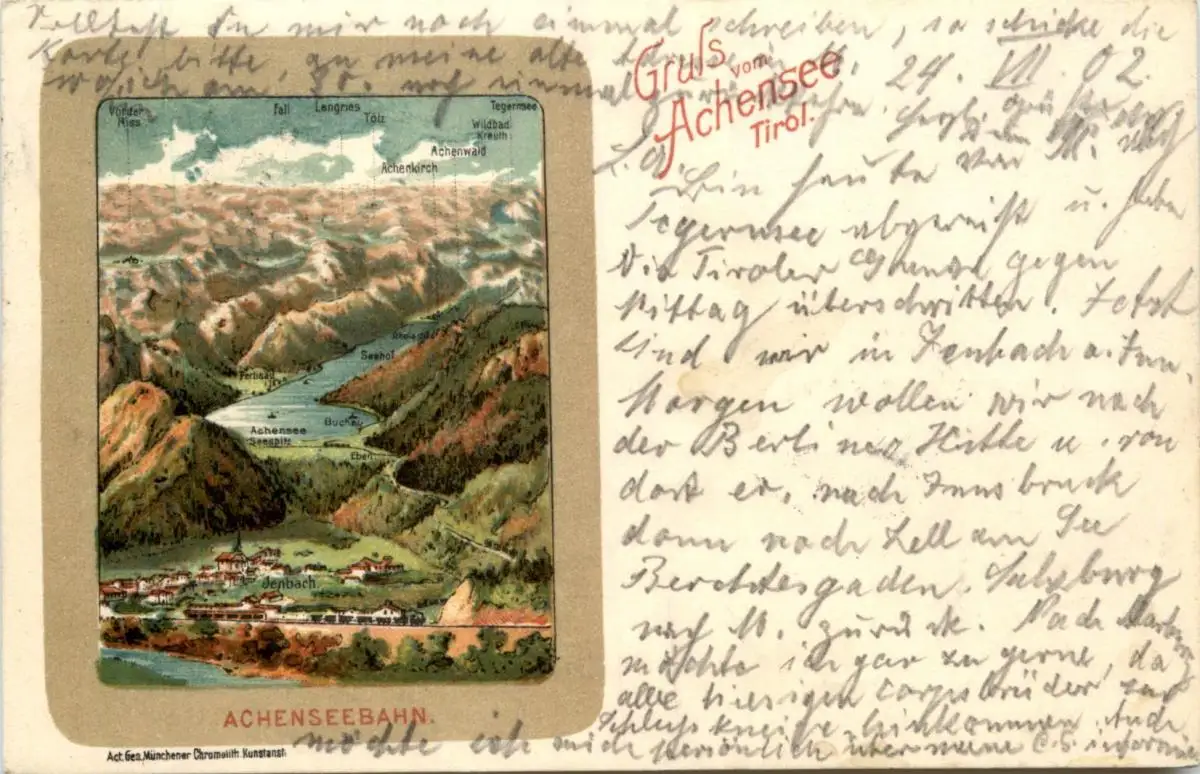 Solltest Du mir noch einmal schreiben, so schicke die
Karte bitte, an meine alte
wo ich am 30. noch einmal
Gruß vom
Achensee
Tirol.
24. VII. 02.
Bin heute von
Tegernsee abgereist u. habe
die Tiroler Grenze gegen
Mittag überschritten. Jetzt
sind wir in Jenbach a. Inn.
Morgen wollen wir nach
der Berliner Hütte u. von
dort er. nach Innsbruck
dann nach Zell am See
Berchtesgaden. Salzburg
nach M. zurück. Nach
möchte ich gar zu gerne, da
alle hiesigen Corpsbrüder zur
Schlußkneipe hinkommen. Auch
möchte ich mich persönlich über meine
Vorder Riss
Fall
Lengries
Tölz
Tegernsee
Wildbad Kreuth
Achenwald
Achenkirch
Seehof
Pertisau
Achensee
Seespitz
Buchau
Eben
Jenbach
ACHENSEEBAHN.
Act. Ges. Münchener Chromolith. Kunstanst.